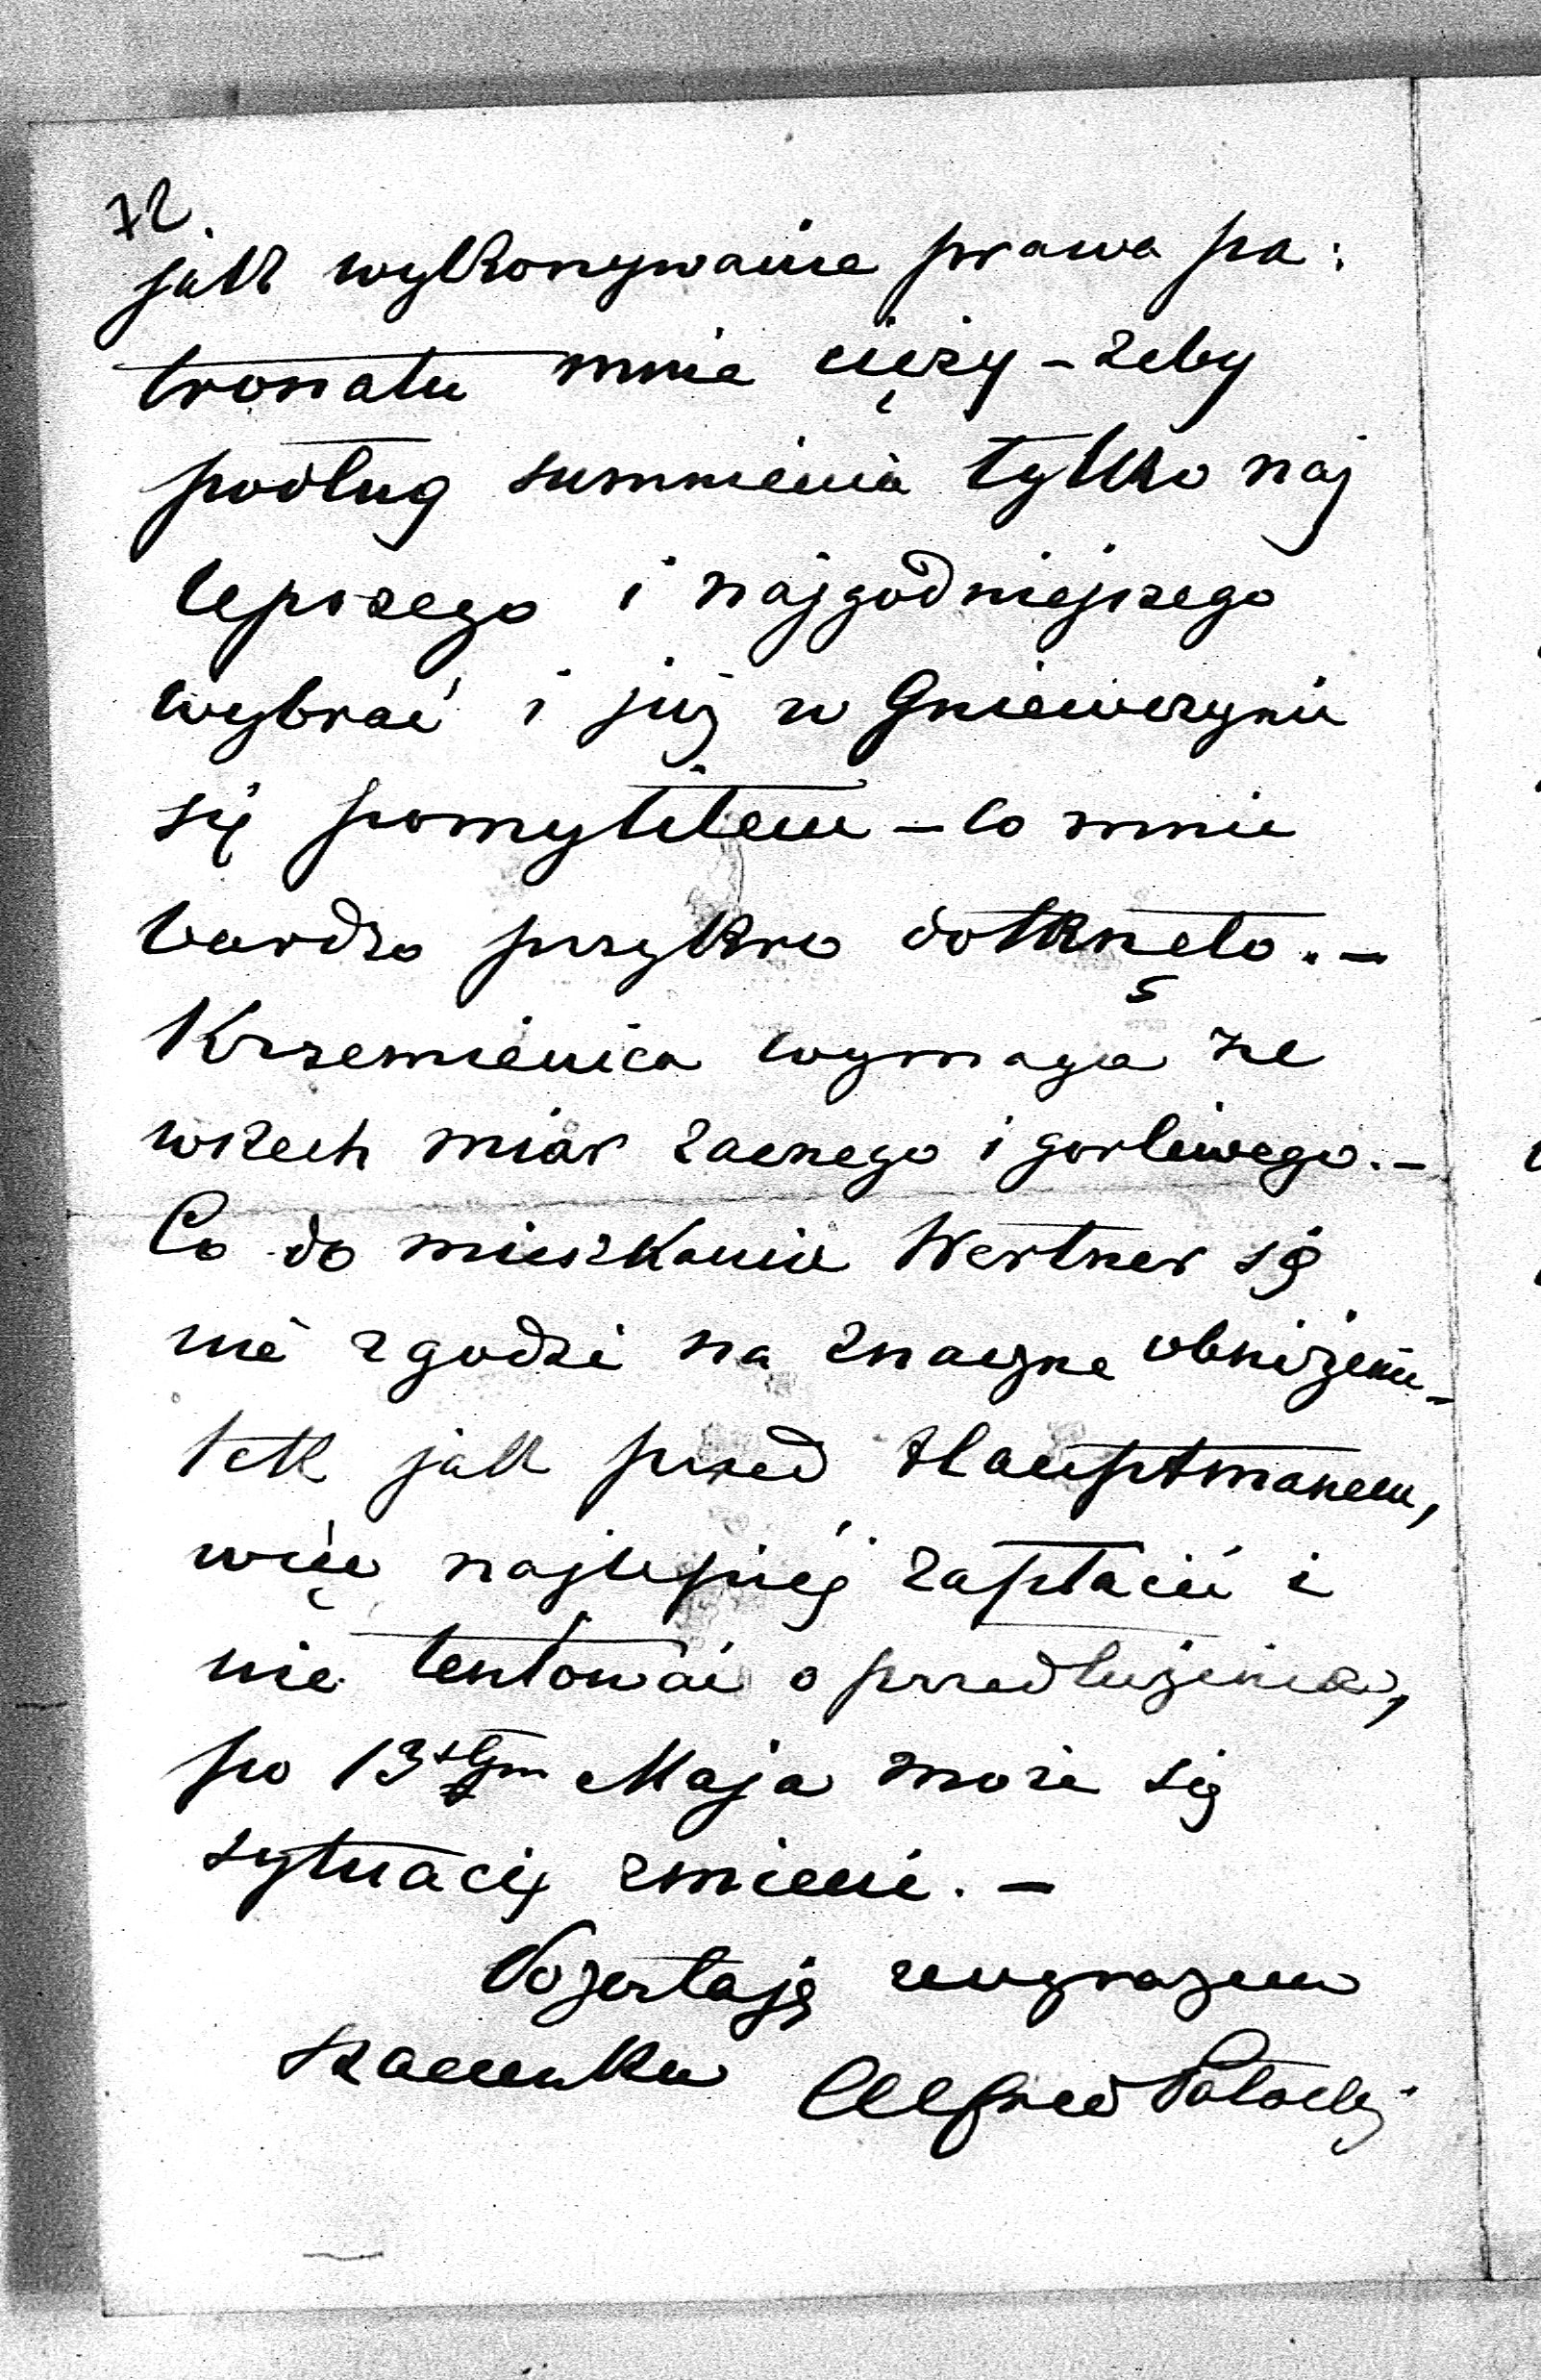 72.
jak wykonywanie prawa pa:
tronatu mnie cięży – żeby
podług sumnienia tylko naj
lepszego i najgodniejszego
wybrać i już w Gniewczynie
się pomyliłem – co mnie
bardzo przykro dotknęło. –
Krzemienica wymaga ze
wszech miar zacnego i gorliwego. –
Co do mieszkania Wertner się
nie zgodzi na znaczne obniżenie –
tak jak przed Hauptmanem,
więc najlepiéj zapłacić i
nie tentować o przedłużenie,
po 13stym Maja może się
sytuacię zmieni. –
Pozostaję z wyrazem
szacunku Alfred Potocki